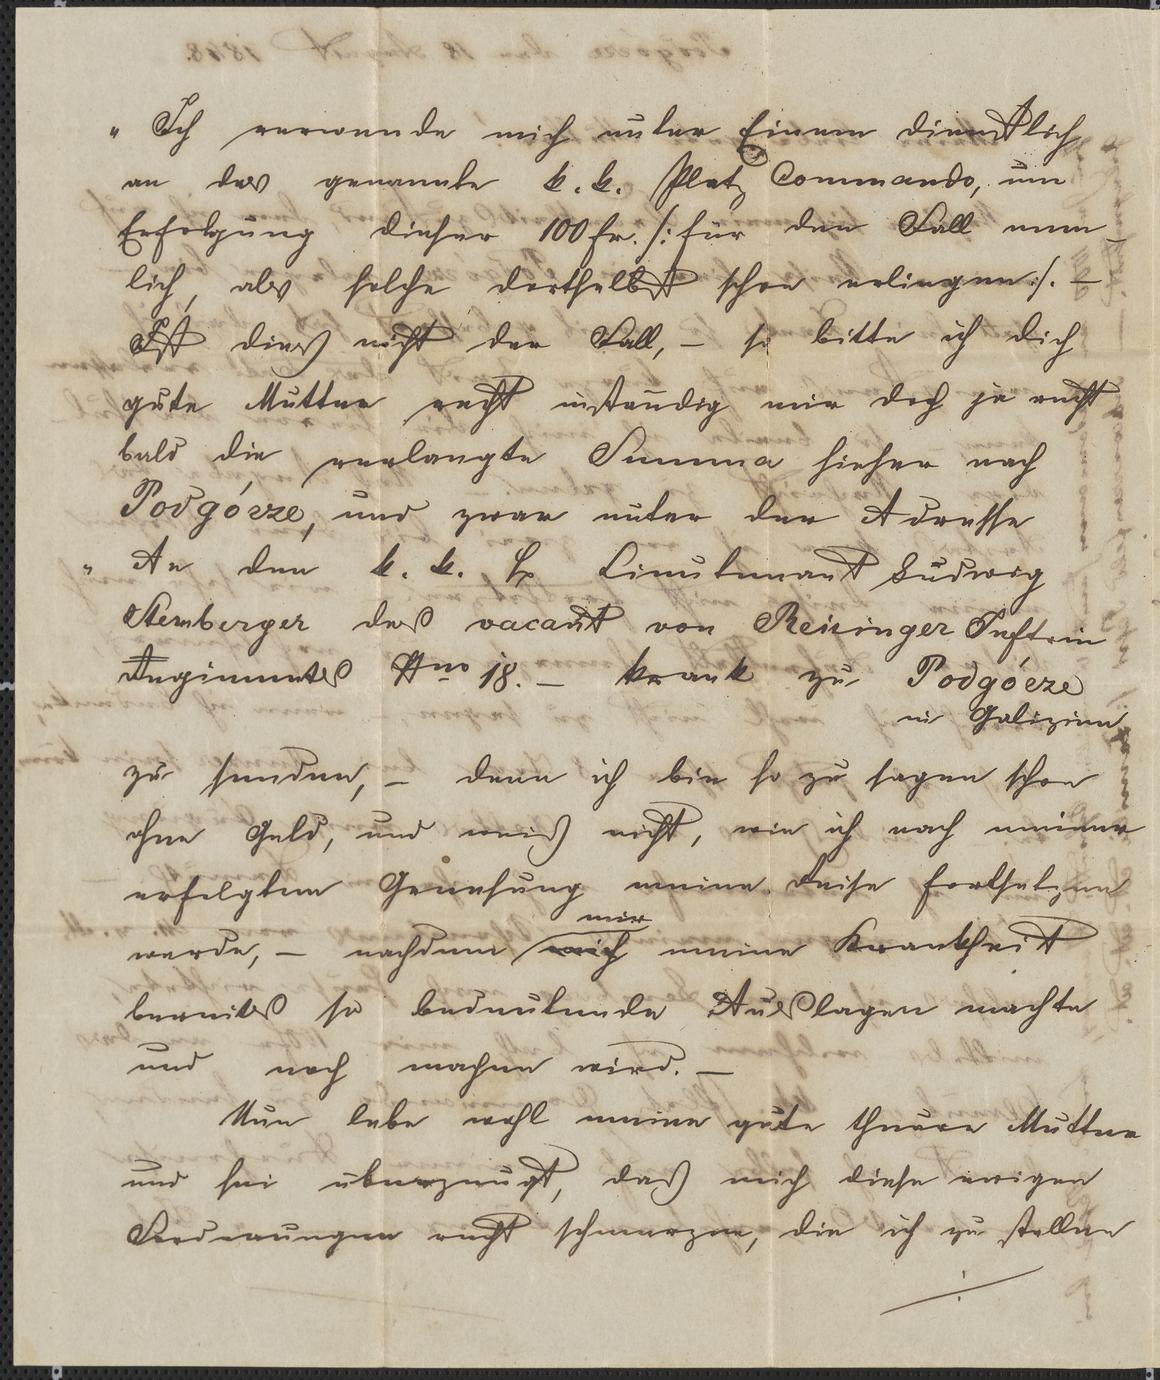 „ Ich verwende mich unter Einem dienstlich
an das genannte k. k. Platz Commando, um
Erfolgung dieser 100 fr. /: für den Fall nem-
lich, als solche dorthselbst schon erliegen :/. –
Ist dieß nicht der Fall, – so bitte ich dich
gute Mutter recht inständig mir doch ja recht
bald die verlangte Summa hieher nach
Podgórze, und zwar unter der Adresse
„ An den k. k. H Lieutenant Ludwig
Sternberger des vacant von Reisinger Inftrie
Regimentes No 18. – krank zu Podgórze
in Galizien
zu senden, – denn ich bin so zu sagen schon
ohne Geld, und weiß nicht, wie ich nach meiner
erfolgten Genesung meine Reise fortsetzen
werde, – nachdem mich mir meine Krankheit
bereits so bedeutende Auslagen machte
und noch machen wird. –
Nun lebe wohl meine gute theure Mutter
und sei überzeugt, daß mich diese ewigen
Forderungen recht schmerzen, die ich zu stellen
./.